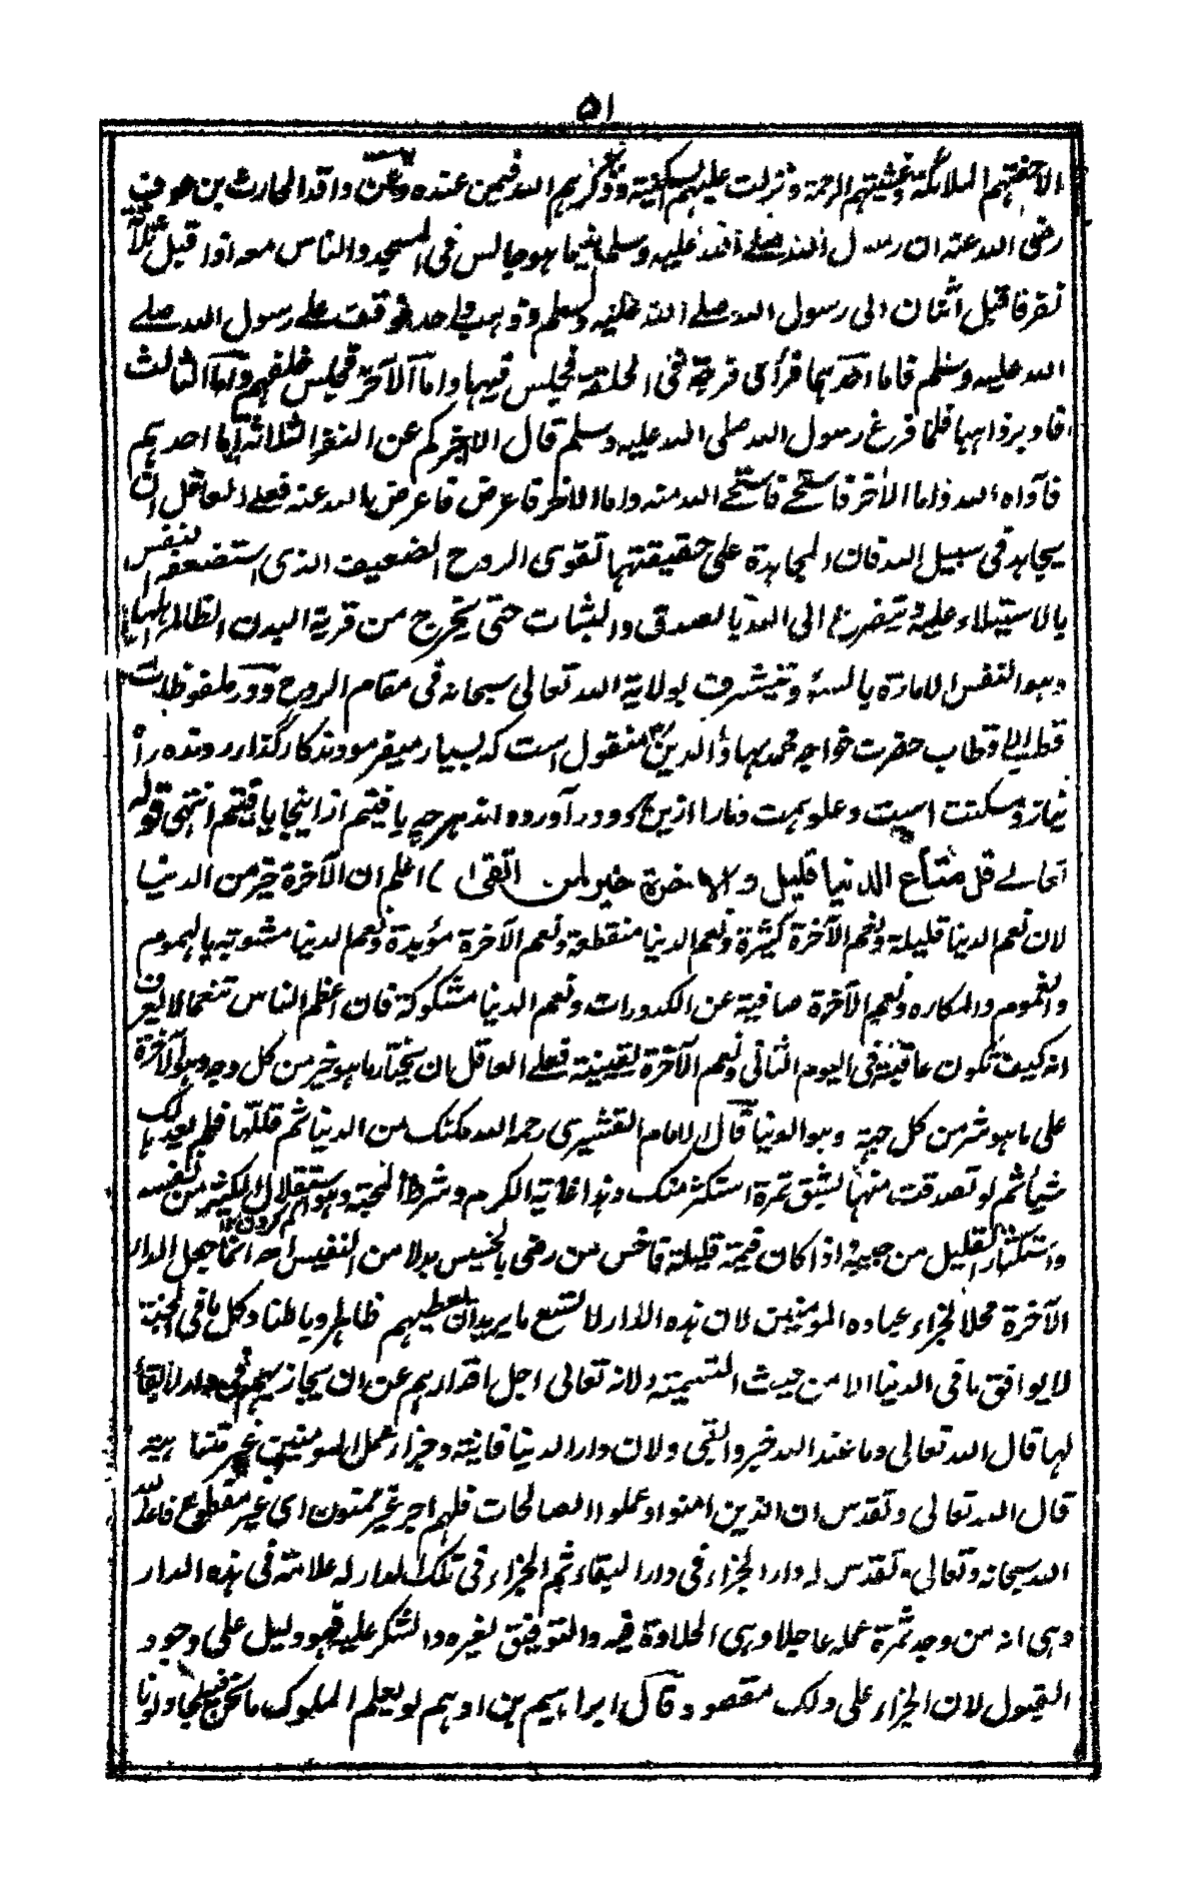 ٥١
الا حفتهم الملائكة وغشيتهم الرحمة ونزلت عليهم السكينة وذكرهم الله فيمن عنده وعن واقد الحارث بن عوف
رضى الله عنه ان رسول الله صلى الله عليه وسلم بينما هو جالس فى المسجد والناس معه اذا قبل ثلاثة
نفر فاقبل اثنان الى رسول الله صلى الله عليه وسلم وذهب واحد فوقفت على رسول الله صلے
الله عليه وسلم فاما احدهما فرأى فرجة فى الحلقة فجلس فيها واما الآخر فجلس خلفهم واما الثالث
فادبر ذاهبا فلما فرغ رسول الله صلى الله عليه وسلم قال الا اخبركم عن النفر الثلاثة اما احدهم
فآواه الله واما الآخر فاستحے فاستحے الله منه واما الآخر فاعرض فاعرض الله عنه فعلے العاقل ان
يجاهد فى سبيل الله فان المجاهدة على حقيقتها تقوى الروح الضعيف الذى استضعفه النفس
بالاستيلاء عليه ويتضرع الى الله بالصدق والثبات حتى يخرج من قرية البدن الظالم اهلها
وهو النفس الامارة بالسوء وتتشرف بولاية الله تعالى سبحانه فى مقام الروح ودر ملفوظات
قطب الاقطاب حضرت خواجه محمد بهاؤالدين منقول است كه بسيار ميفرمودند كار گذار رونده را
نياز ومسكنت است وعلو همت ومارا ازين در درآورده اند هرچه يافتيم از اينجا يافتيم انتهى قوله
تعالے قل متاع الدنيا قليل والاخرة خير لمن اتقى) اعلم ان الآخرة خير من الدنيا
لان نعم الدنيا قليلة ونعم الآخرة كثيرة ونعم الدنيا منقطعة ونعم الآخرة مؤبدة ونعم الدنيا مشوبة بالهموم
والغموم والمكاره ونعم الآخرة صافية عن الكدورات ونعم الدنيا مشكوكة فان اعظم الناس تنعما لا يعرف
انه كيف تكون عاقبته فى اليوم الثانى ونعم الآخرة يقينية فعلے العاقل ان يختار ما هو خير من كل وجه وهو الآخرة
على ما هو شر من كل جهة وهو الدنيا قال الامام القشيرى رحمه الله مكنك من الدنيا ثم قللها فلم يعد لك
شيأ ثم لو تصدقت منها بشق تمرة استكثر منك وهذا غاية الكرم وشرط المحبة وهو استقلال الكثير من نفسه
واستكثار القليل من حبيبه اذا كان قيمة قليلة فاخس من رضى بالخسيس بدلا من النفيس اه انما جعل الدار
الآخرة محلا لجزاء عباده المؤمنين لان هذه الدار لا تسع ما يريد ان يعطيهم ظاهرا وباطنا وكل ما فى الجنة
لا يوافق ما فى الدنيا الا من حيث التسمية ولانه تعالى اجل اقدارهم عن ان يجازيهم فى دار لا بقاء
لها قال الله تعالى وما عند الله خير وابقى ولان دار الدنيا فانية وجزاء عمل المؤمنين غير متناهية
قال الله تعالى وتقدس ان الذين امنوا وعملوا الصالحات فلهم اجر غير ممنون اى غير مقطوع فاعد
الله سبحانه وتعالى وتقدس له دار الجزاء فى دار البقاء ثم الجزاء فى تلك الدار له علامة فى هذه الدار
وهى انه من وجد ثمرة عمله عاجلا وهى الحلاوة فيه والتوفيق لغيره والشكر عليه فهو دليل على وجود
القبول لان الجزاء على ذلك مقصود وقال ابراهيم بن ادهم لو يعلم الملوك ما نحن فيه